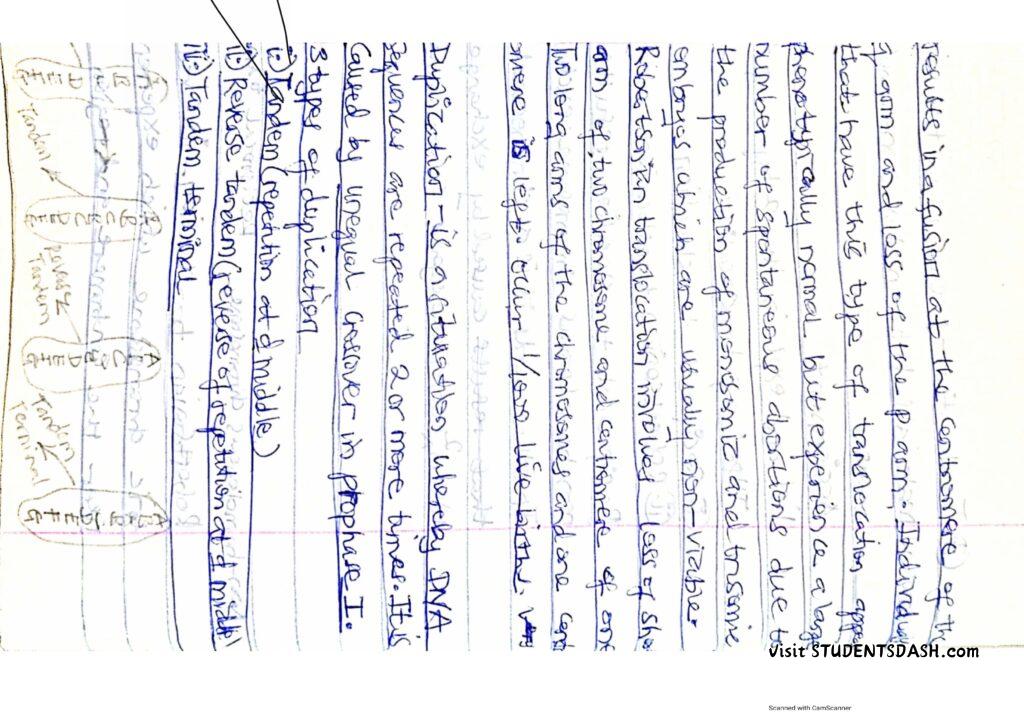 results in a fusion at the centromere of the
q arm and loss of the p arm. Individu
that have this type of translocation appe
phenotypically normal but experience a large
number of spontaneous abortions due to
the production of monosomic and trisomic
embryos which are usually non-viable.
Robertsonian translocation involves loss of sho
arm of two chromosome and centromere of one
Two long arms of the chromosomes and one cent
mere is left. occur 1/1000 live births.
Duplication - is a situation whereby DNA
Sequences are repeated 2 or more times. It is
Caused by unequal crossover in prophase I.
3 types of duplication
i) Tandem (repetition at d middle)
ii) Reverse tandem (reverse of repetition at d middle
iii) Tandem terminal
Tandem
Reverse
Tandem
Tandem
Terminal
Visit STUDENTSDASH.com
Scanned with CamScanner